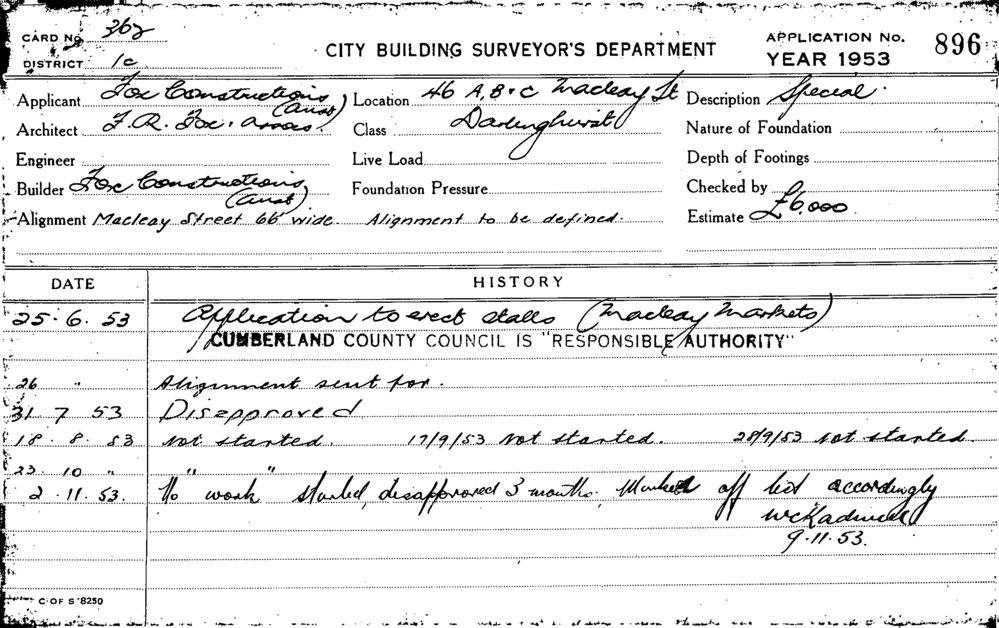 CARD No. 362
DISTRICT 1c
CITY BUILDING SURVEYOR'S DEPARTMENT
APPLICATION No. 896
YEAR 1953
Applicant Fox Constructions (Aust)
Architect F. R. Fox & Assocs.
Engineer
Builder Fox Constructions (Aust)
Location 46 A, B & C Macleay St
Darlinghurst
Class
Live Load
Foundation Pressure
Description Special.
Nature of Foundation
Depth of Footings
Checked by
Estimate £6,000
Alignment Macleay Street 66' wide. Alignment to be defined.
DATE HISTORY
25. 6. 53 Application to erect stalls (Macleay Markets)
CUMBERLAND COUNTY COUNCIL IS "RESPONSIBLE AUTHORITY"
26 " Alignment sent for.
31 7 53 Disapproved
18. 8. 53 Not started. 17/9/53 Not started. 28/9/53 not started.
23. 10 " " "
2. 11. 53. No work started, disapproved 3 months. Marked off list accordingly
9.11.53.
C. OF S 8250